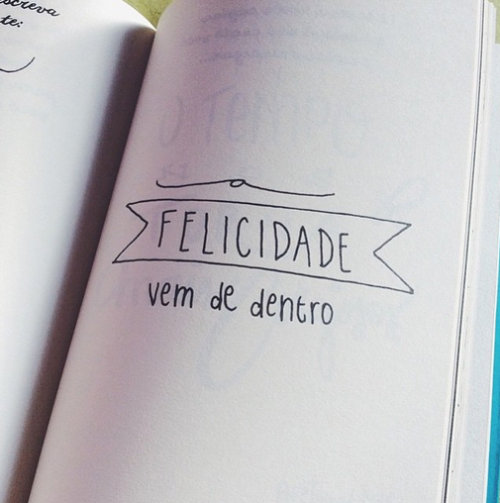 screva
te:
a
FELICIDADE
vem de dentro